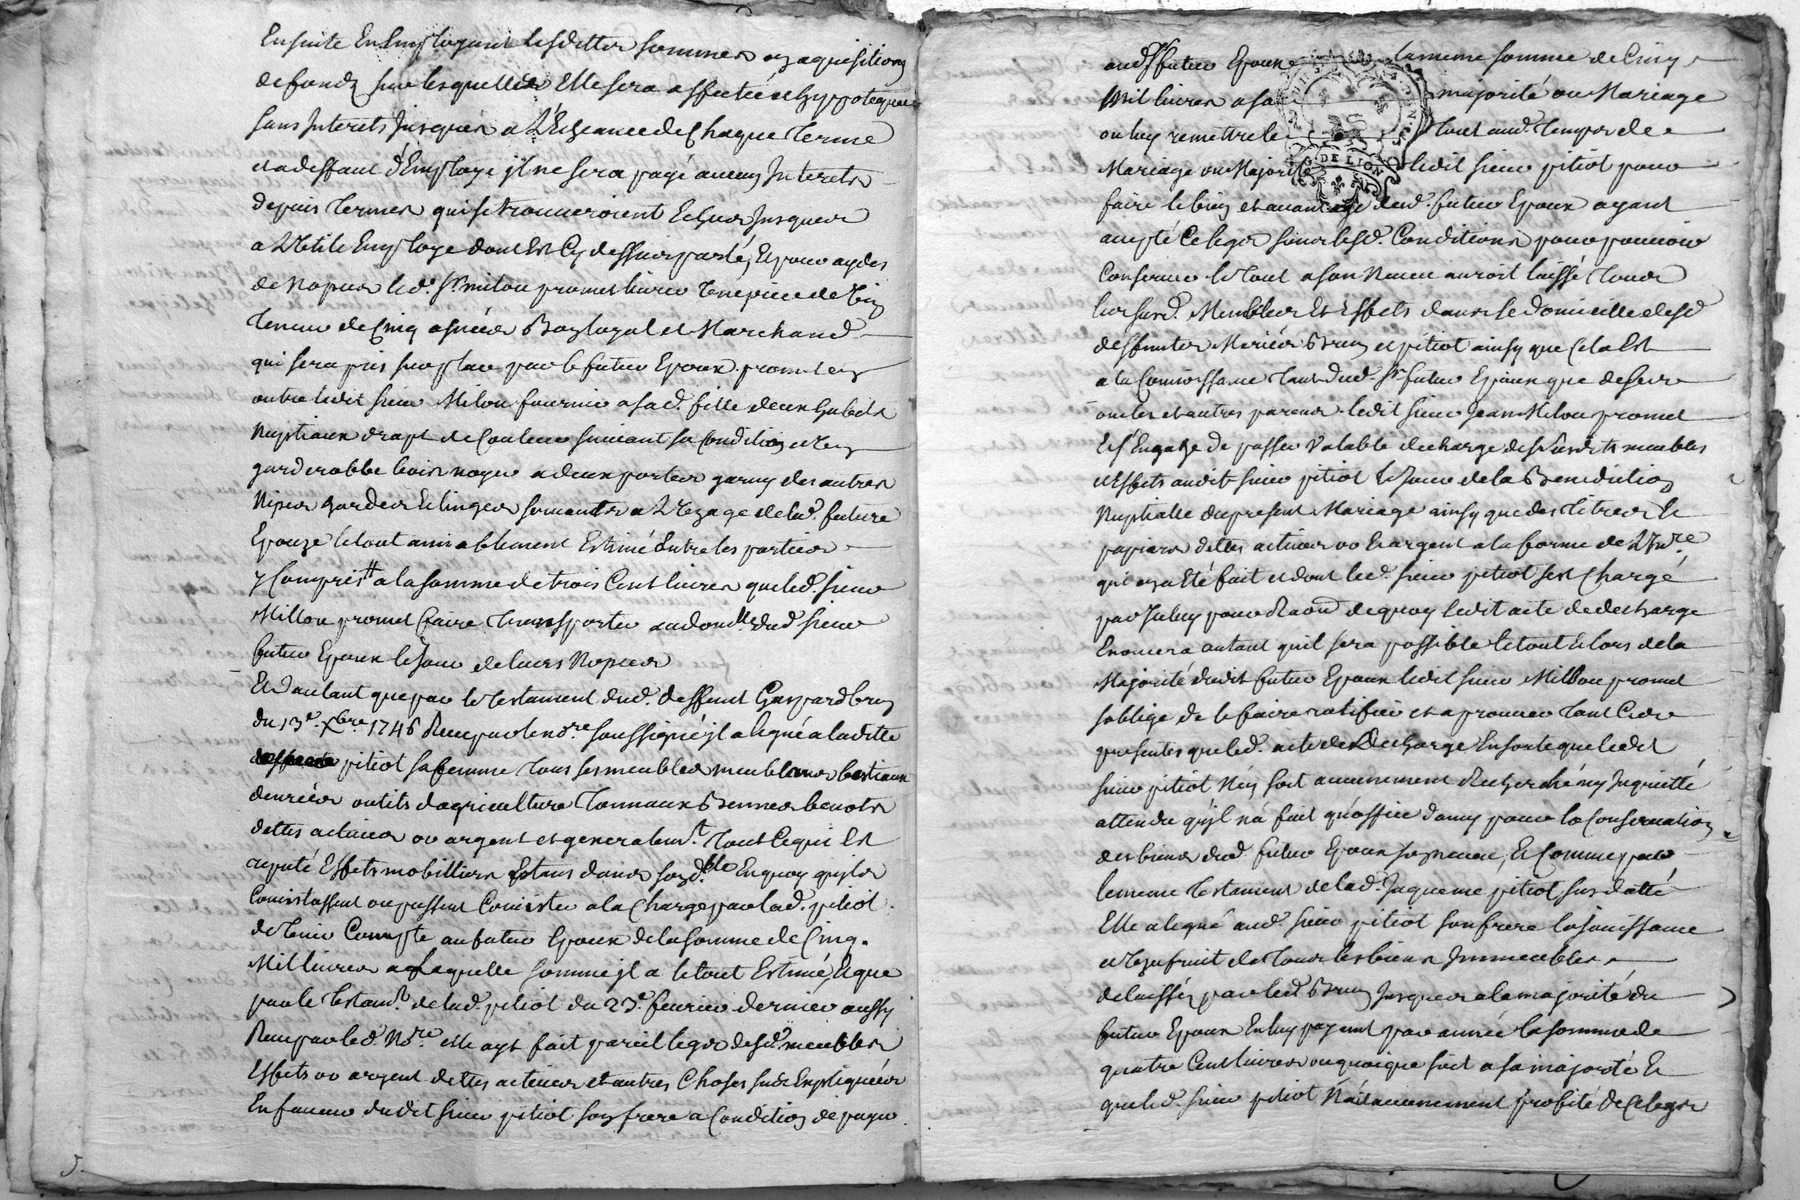 Ensuite En Employant lesdittes sommes en aquisitions
de fonds sur lesquelles Elle sera affectée et hypotequée
sans Interets Jusques a L'Echeance de Chaque terme
et a deffaut d'Employe jl ne sera payé aucuns Interets
depuis termes qui se trouveroient Echus Jusques
a L'Utile Employe dont Est Cy dessus parlé, Et pour aydes
de Nopces led. Sr. milou promet livrer une piece de Vin
tenue de Cinq asnées Bon loyal et Marchand
qui sera pris sur place par le futur Epoux promet en
outre ledit sieur Milou fournir a sad. fille deux habits
Nuptiaux drapt de Couleur suivant sa Condition et Une
garderobbe bois noyer a deux portes garny des autres
Nipes hardes Et linges servants a L'Uzage de lad. future
Epouze le tout amiablement Estimé Entre les parties
y Compris a la somme de trois Cent livres que led. sieur
Millou promet faire transporter au domlle dud. sieur
futur Epoux le Jour de leurs Nopces
Et d'autant que par le testament dud. deffunt Gaspard brun
du 13e. Xbre 1746 Receu par le nore soussigné jl a legué a laditte
pitiot sa femme tous ses meubles meublans bestiaux
denrées outils d'agriculture tonnaux Bennes benots
dettes actives ou argent et generalemt. tout Ce qui Est
reputé Effets mobilliers Estans dans son d.lle En quoy qu'ils
Consistassent ou pussent Consister a la Charge par lad. pitiot
de tenir Compte au futur Epoux de la somme de Cinq
Mil livres a laquelle somme jl a le tout Estimé, Et que
par le testamt. de lad. pitiot du 23e. fevrier dernier aussy
Receu par led. Nore elle ayt fait pareil legs desd. meubles
Effets ou argent dettes actives et autres Choses sus Expliquées
En faveur dudit sieur pitiot son frere a Condition de payer
aud. futur Epoux la meme somme de Cinq
Mil livres a sa majorité ou Mariage
ou luy remettre le tout aud. temps de
Mariage ou Majorité ledit sieur pitiot pour
faire le bien et avantage dud. futur Epoux ayant
accepté Ce legs sous lesd. Conditions pour pouvoir
Conserver le tout a son Neveu auroit laissé tous
les susd. Meubles Et Effets dans le domicille desd.
deffuntes Meriés Brun et pitiot ainsy que Cela Est
a la Connoissance tant dud. Sr. futur Epoux que de ses
oncles et autres parens ledit sieur Jean Milou promet
Et s'Engage de passer Valable decharge des susdits meubles
et Effets audit sieur pitiot le Jour de la Benediction
Nuptialle du present Mariage ainsy que des titres Et
papiers dettes actives ou Et argent a la forme de L'Invre.
qui en a Eté fait et dont led. sieur pitiot s'est Chargé
par Juluy pour Raon. de quoy ledit acte de decharge
Enoncera autant qu'il sera possible le tout Et lors de la
Majorité dudit futur Epoux ledit sieur Millou promet
s'oblige de le faire ratifier et aprouver tant Ces
presentes que led. acte de decharge En sorte que ledit
sieur pitiot N'en soit aucunement Recherché ny Inquietté
attendu qu'jl n'a fait qu'office d'amy pour la Conservation
des biens dud. futur Epoux son neveu, Et Comme par
le meme testament de lad. Jaquemé pitiot sus datté
Elle a legué aud. sieur pitiot son frere la Jouissance
et Uzufruit de tous les biens Immeubles
delaissés par led. Brun Jusques a la majorité du
futur Epoux En luy payant par année la somme de
quatre Cent livres ou quoique soit a sa majorité Et
que led. sieur pitiot N'ait aucunement profité de Ce legs
DE LION